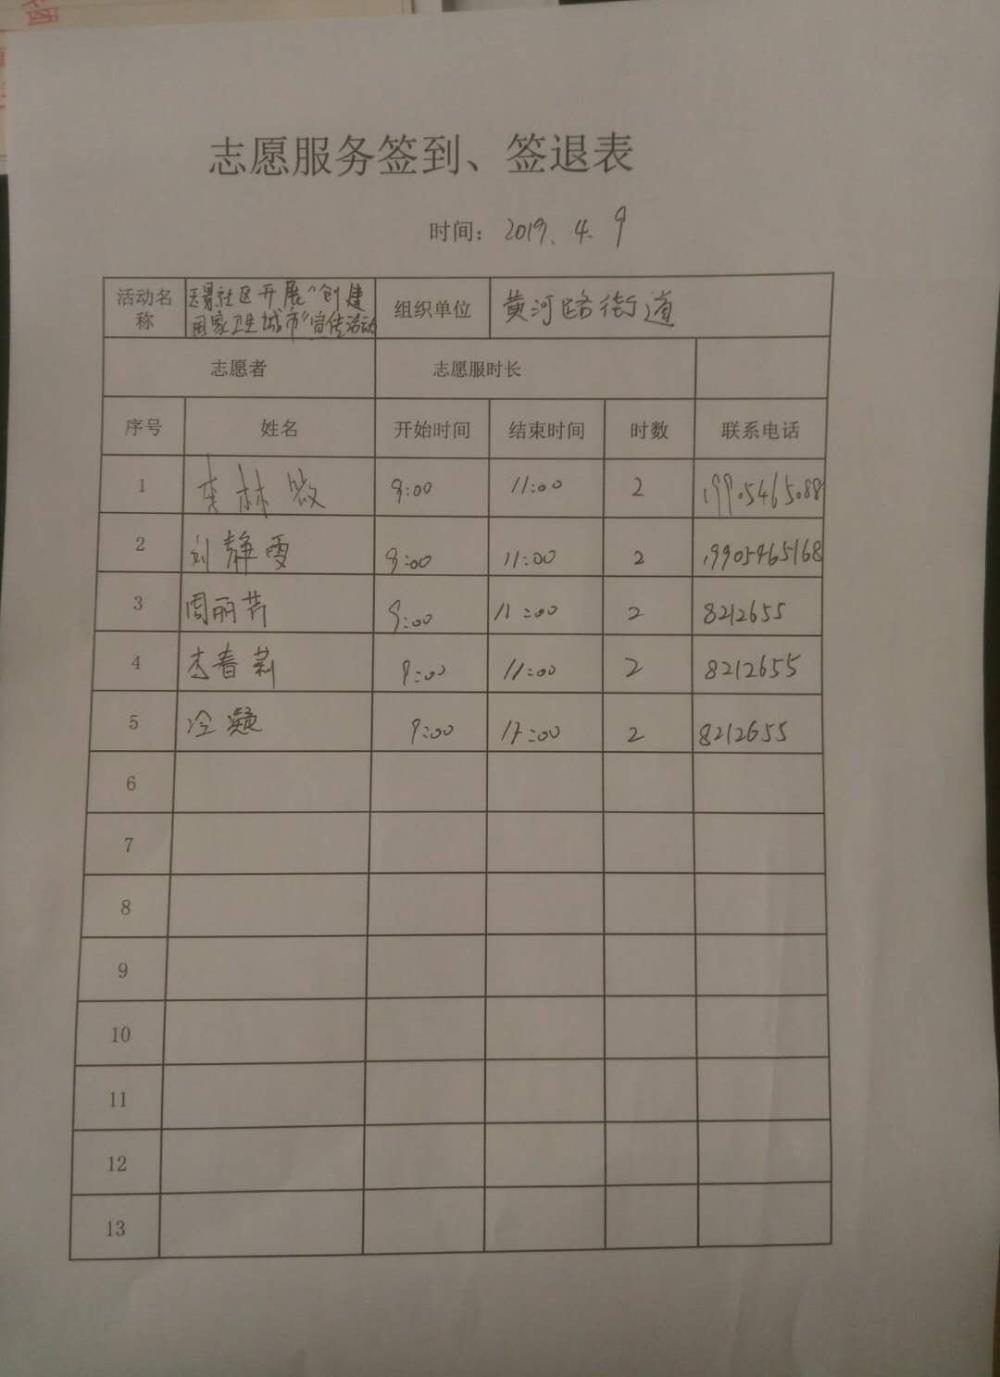 志愿服务签到、签退表
时间: 2019. 4. 9
活动名称 景社区开展"创建国家卫生城市"宣传活动 组织单位 黄河路街道
志愿者 志愿服时长
序号 姓名 开始时间 结束时间 时数 联系电话
1 林 9:00 11:00 2 19905465088
2 刘静雯 9:00 11:00 2 19905465168
3 周丽芹 9:00 11:00 2 8212655
4 李春莉 9:00 11:00 2 8212655
5 冷凝 9:00 11:00 2 8212655
6
7
8
9
10
11
12
13